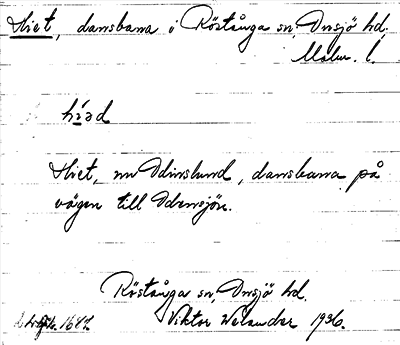 Hiet, dansbana i Röstånga sn, Onsjö hd,
Malm. l.
hiəd
Hiet, nu Odinslund, dansbana på
vägen till Odensjön.
Röstånga sn, Onsjö hd.
1687. Viktor Welander 1936.